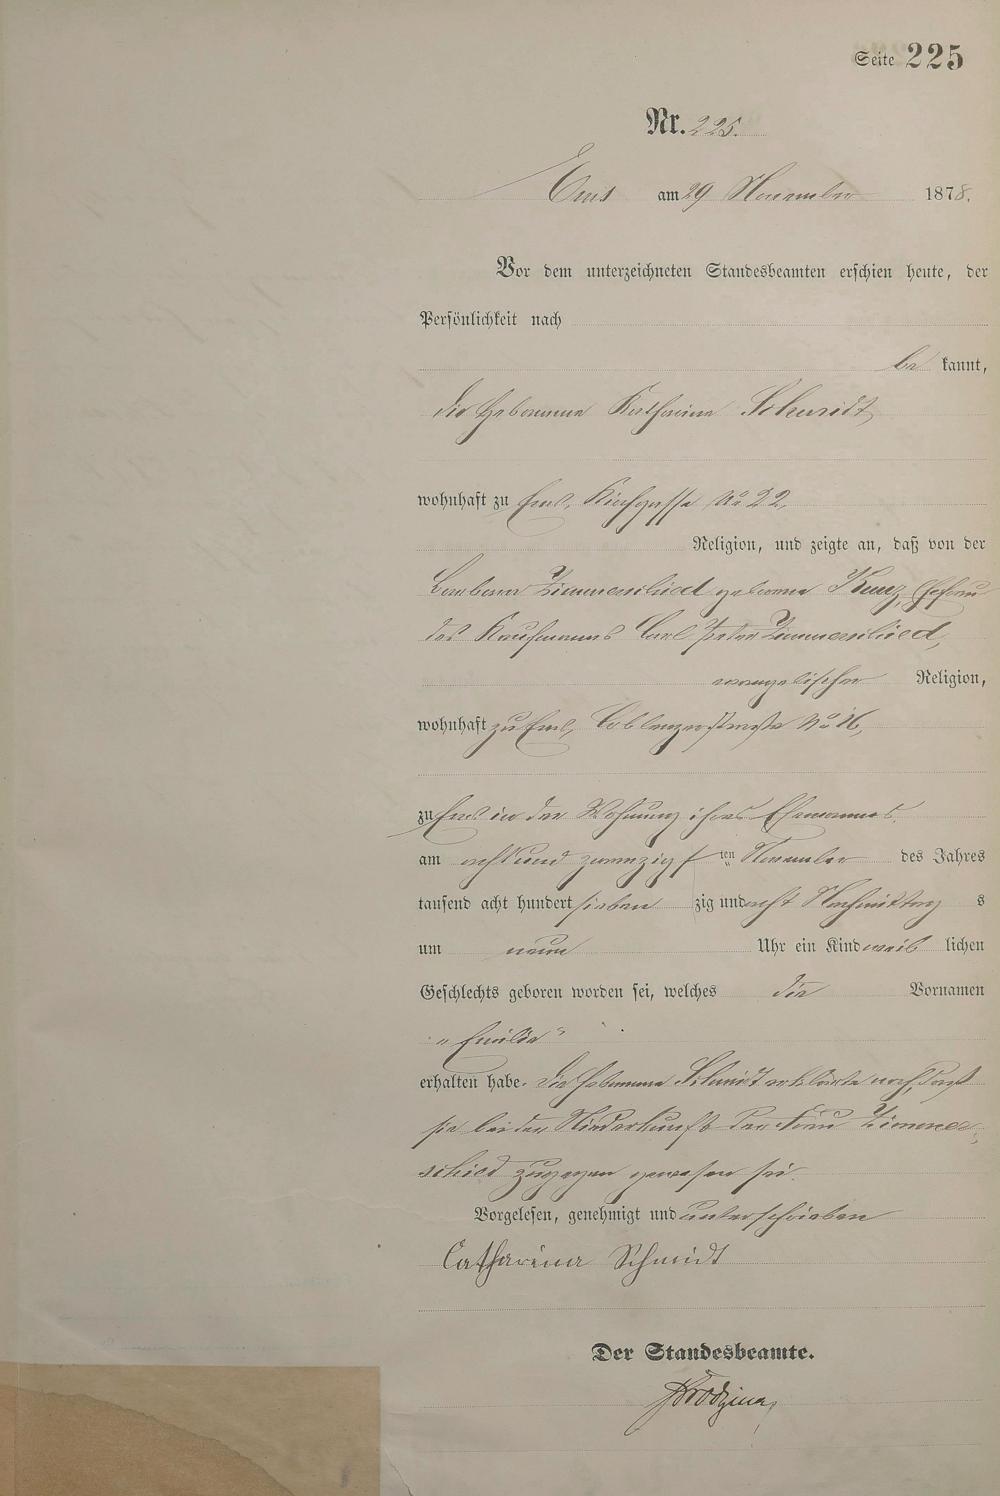 Seite 225
Nr. 225.
Ems am 29 November 1878.
Vor dem unterzeichneten Standesbeamten erschien heute, der
Persönlichkeit nach
be kannt,
die Hebamme Katharina Schmidt
wohnhaft zu Ems, Kirchgasse No 22,
Religion, und zeigte an, daß von der
Barbara Zimmerschied geborne Kunz, Ehefrau
des Kaufmanns Carl Peter Zimmerschied,
evangelischer Religion,
wohnhaft zu Ems, Coblenzerstraße No 16,
zu Ems in der Wohnung ihres Ehemannes
am acht und zwanzigs ten November des Jahres
tausend acht hundert sieben zig und acht Nachmittag s
um neun Uhr ein Kind weib lichen
Geschlechts geboren worden sei, welches die Vornamen
"Emilie"
erhalten habe. Die Hebamme Schmidt erklärte noch, daß
sie bei der Niederkunft der Frau Zimmer-
schied zugegen gewesen sei.
Vorgelesen, genehmigt und unterschrieben
Catharina Schmidt
Der Standesbeamte.